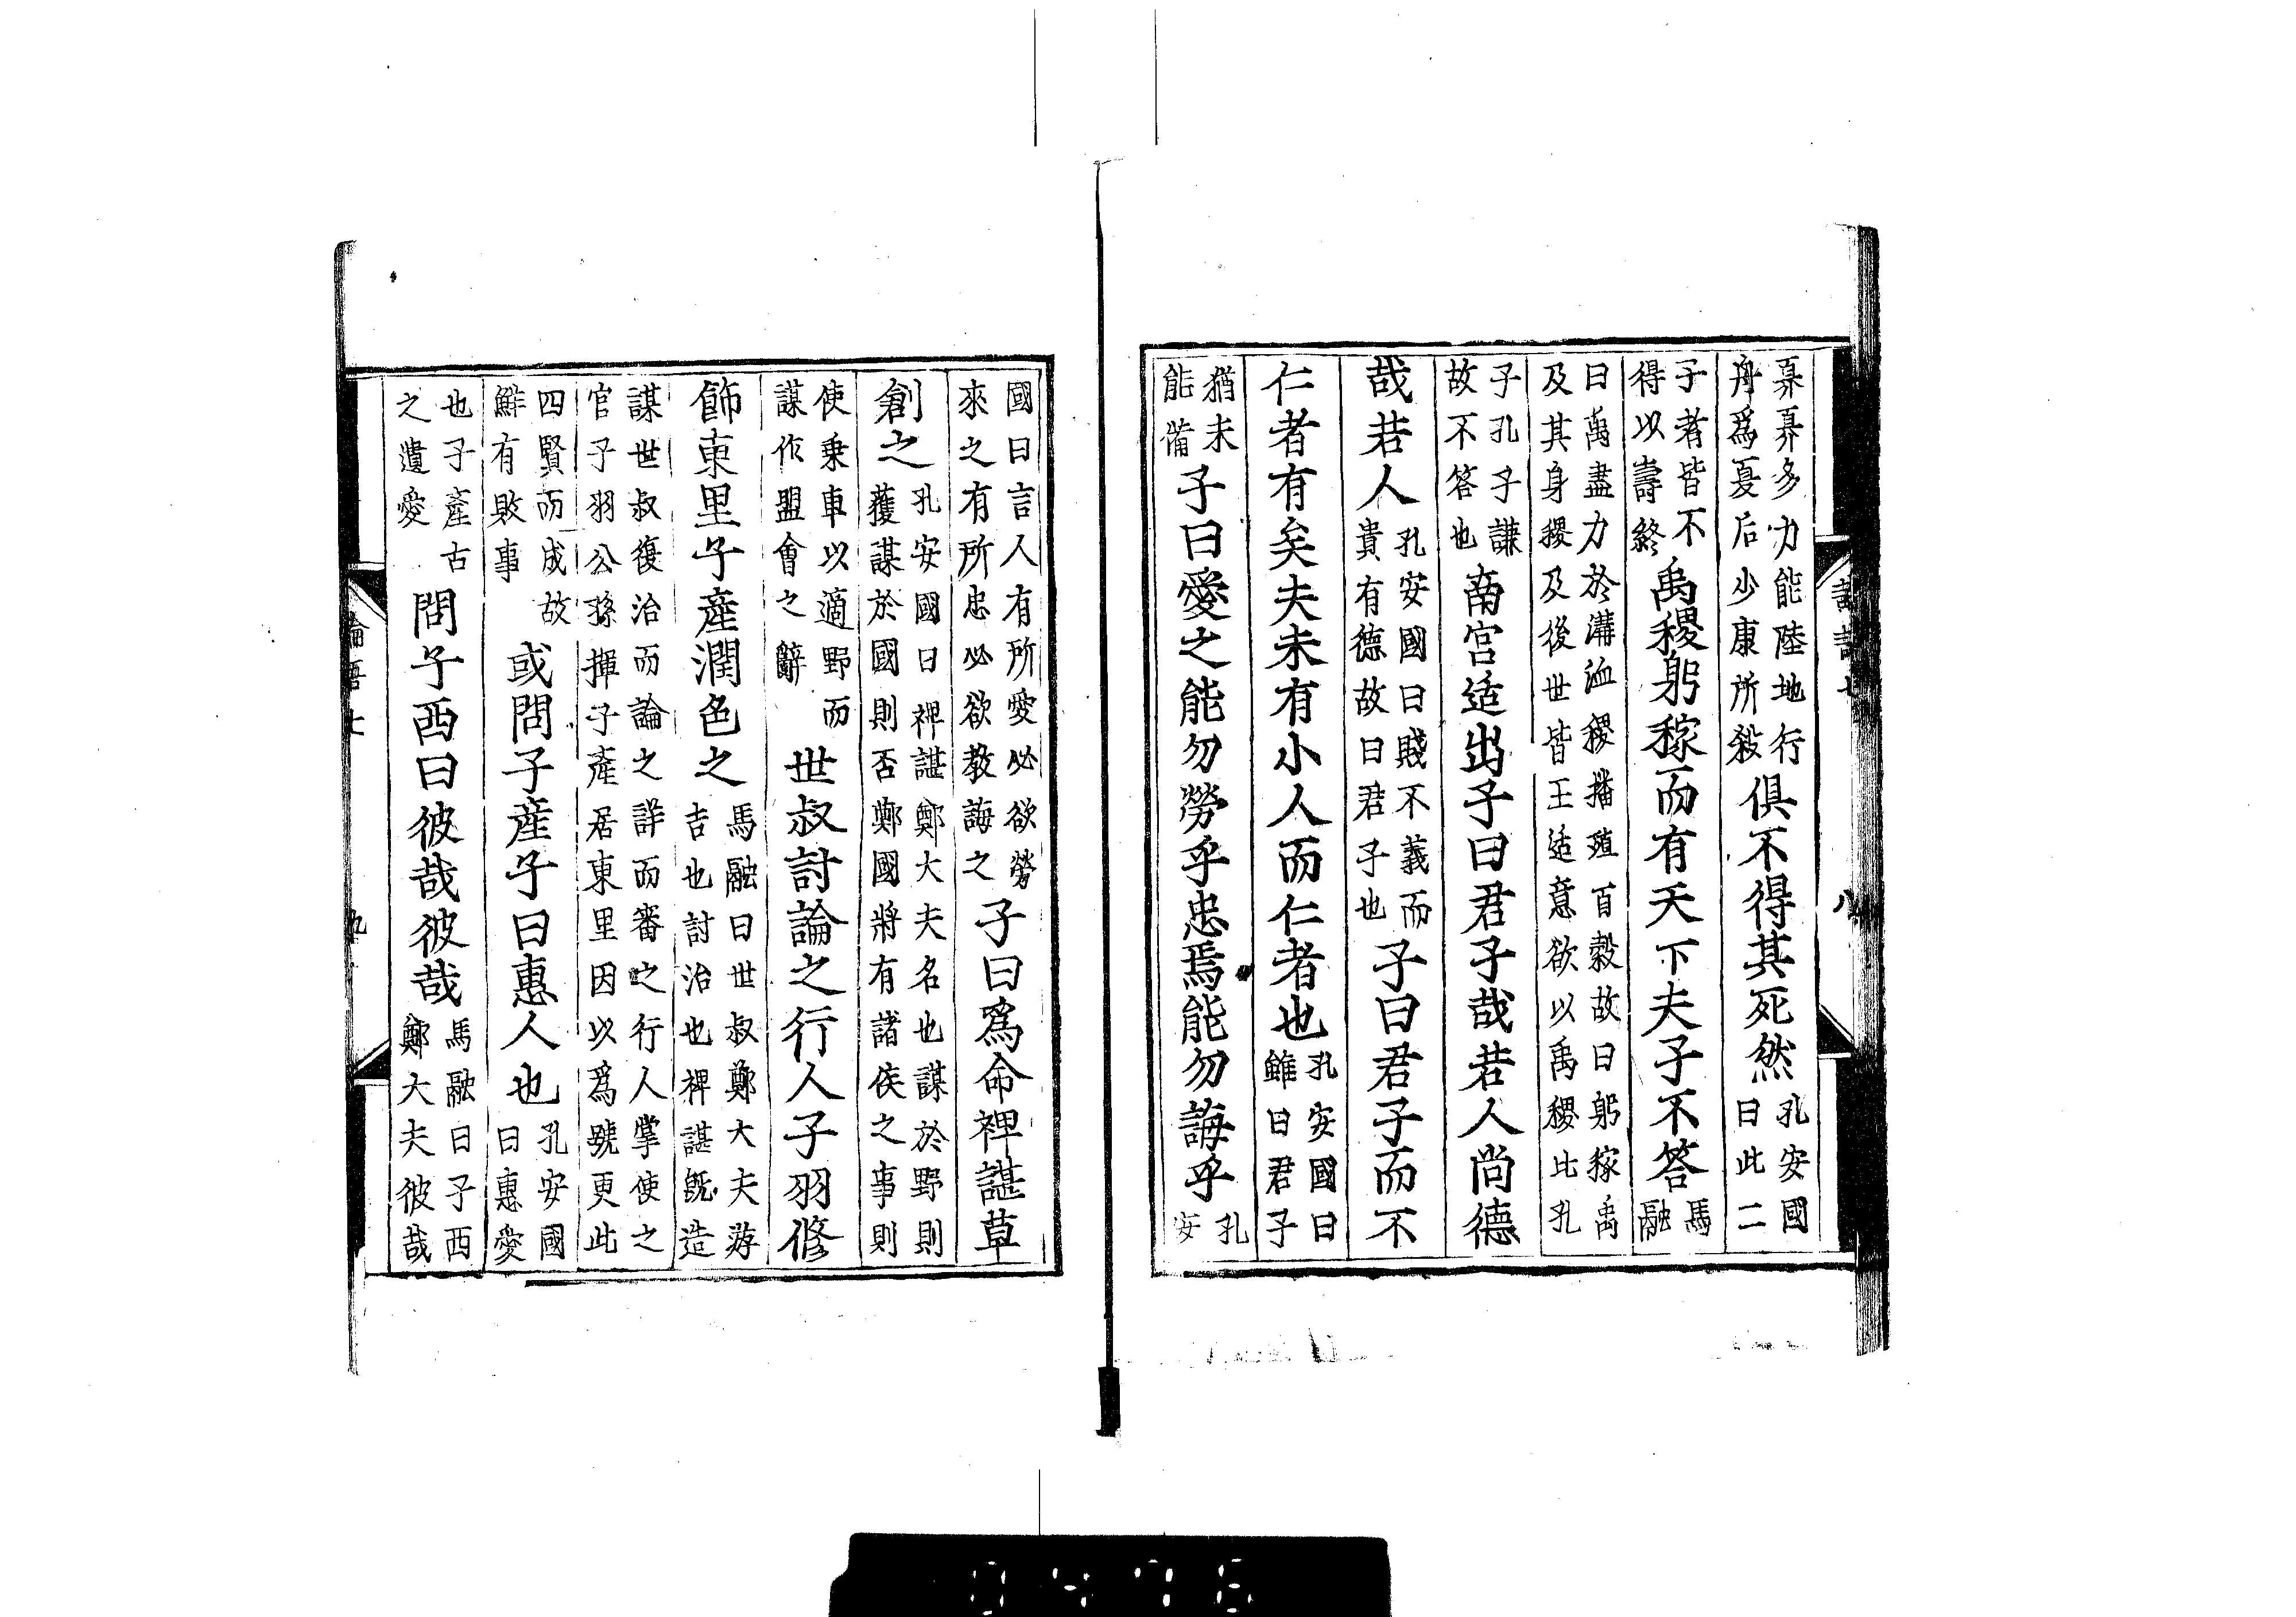 論語七 八
奡奡多力能陸地行舟爲夏后少康所殺俱不得其死然孔安國曰此二
子者皆不得以壽終禹稷躬稼而有天下夫子不答馬融
曰禹盡力於溝洫稷播殖百穀故曰躬稼禹及其身稷及後世皆王适意欲以禹稷比孔
子孔子謙故不答也南宮适出子曰君子哉若人尚德
哉若人孔安國曰賤不義而貴有德故曰君子也子曰君子而不
仁者有矣夫未有小人而仁者也孔安國曰雖曰君子
猶未能備子曰愛之能勿勞乎忠焉能勿誨乎孔安
國曰言人有所愛必欲勞來之有所忠必欲教誨之子曰爲命裨諶草
創之孔安國曰裨諶鄭大夫名也謀於野則獲謀於國則否鄭國將有諸侯之事則
使乗車以適野而謀作盟會之辭世叔討論之行人子羽修
飾東里子產潤色之馬融曰世叔鄭大夫游吉也討治也裨諶既造
謀世叔復治而論之詳而審之行人掌使之官子羽公孫揮子產居東里因以爲號更此
四賢而成故鮮有敗事或問子產子曰惠人也孔安國曰惠愛
也子產古之遺愛問子西曰彼哉彼哉馬融曰子西鄭大夫彼哉
論語七 九